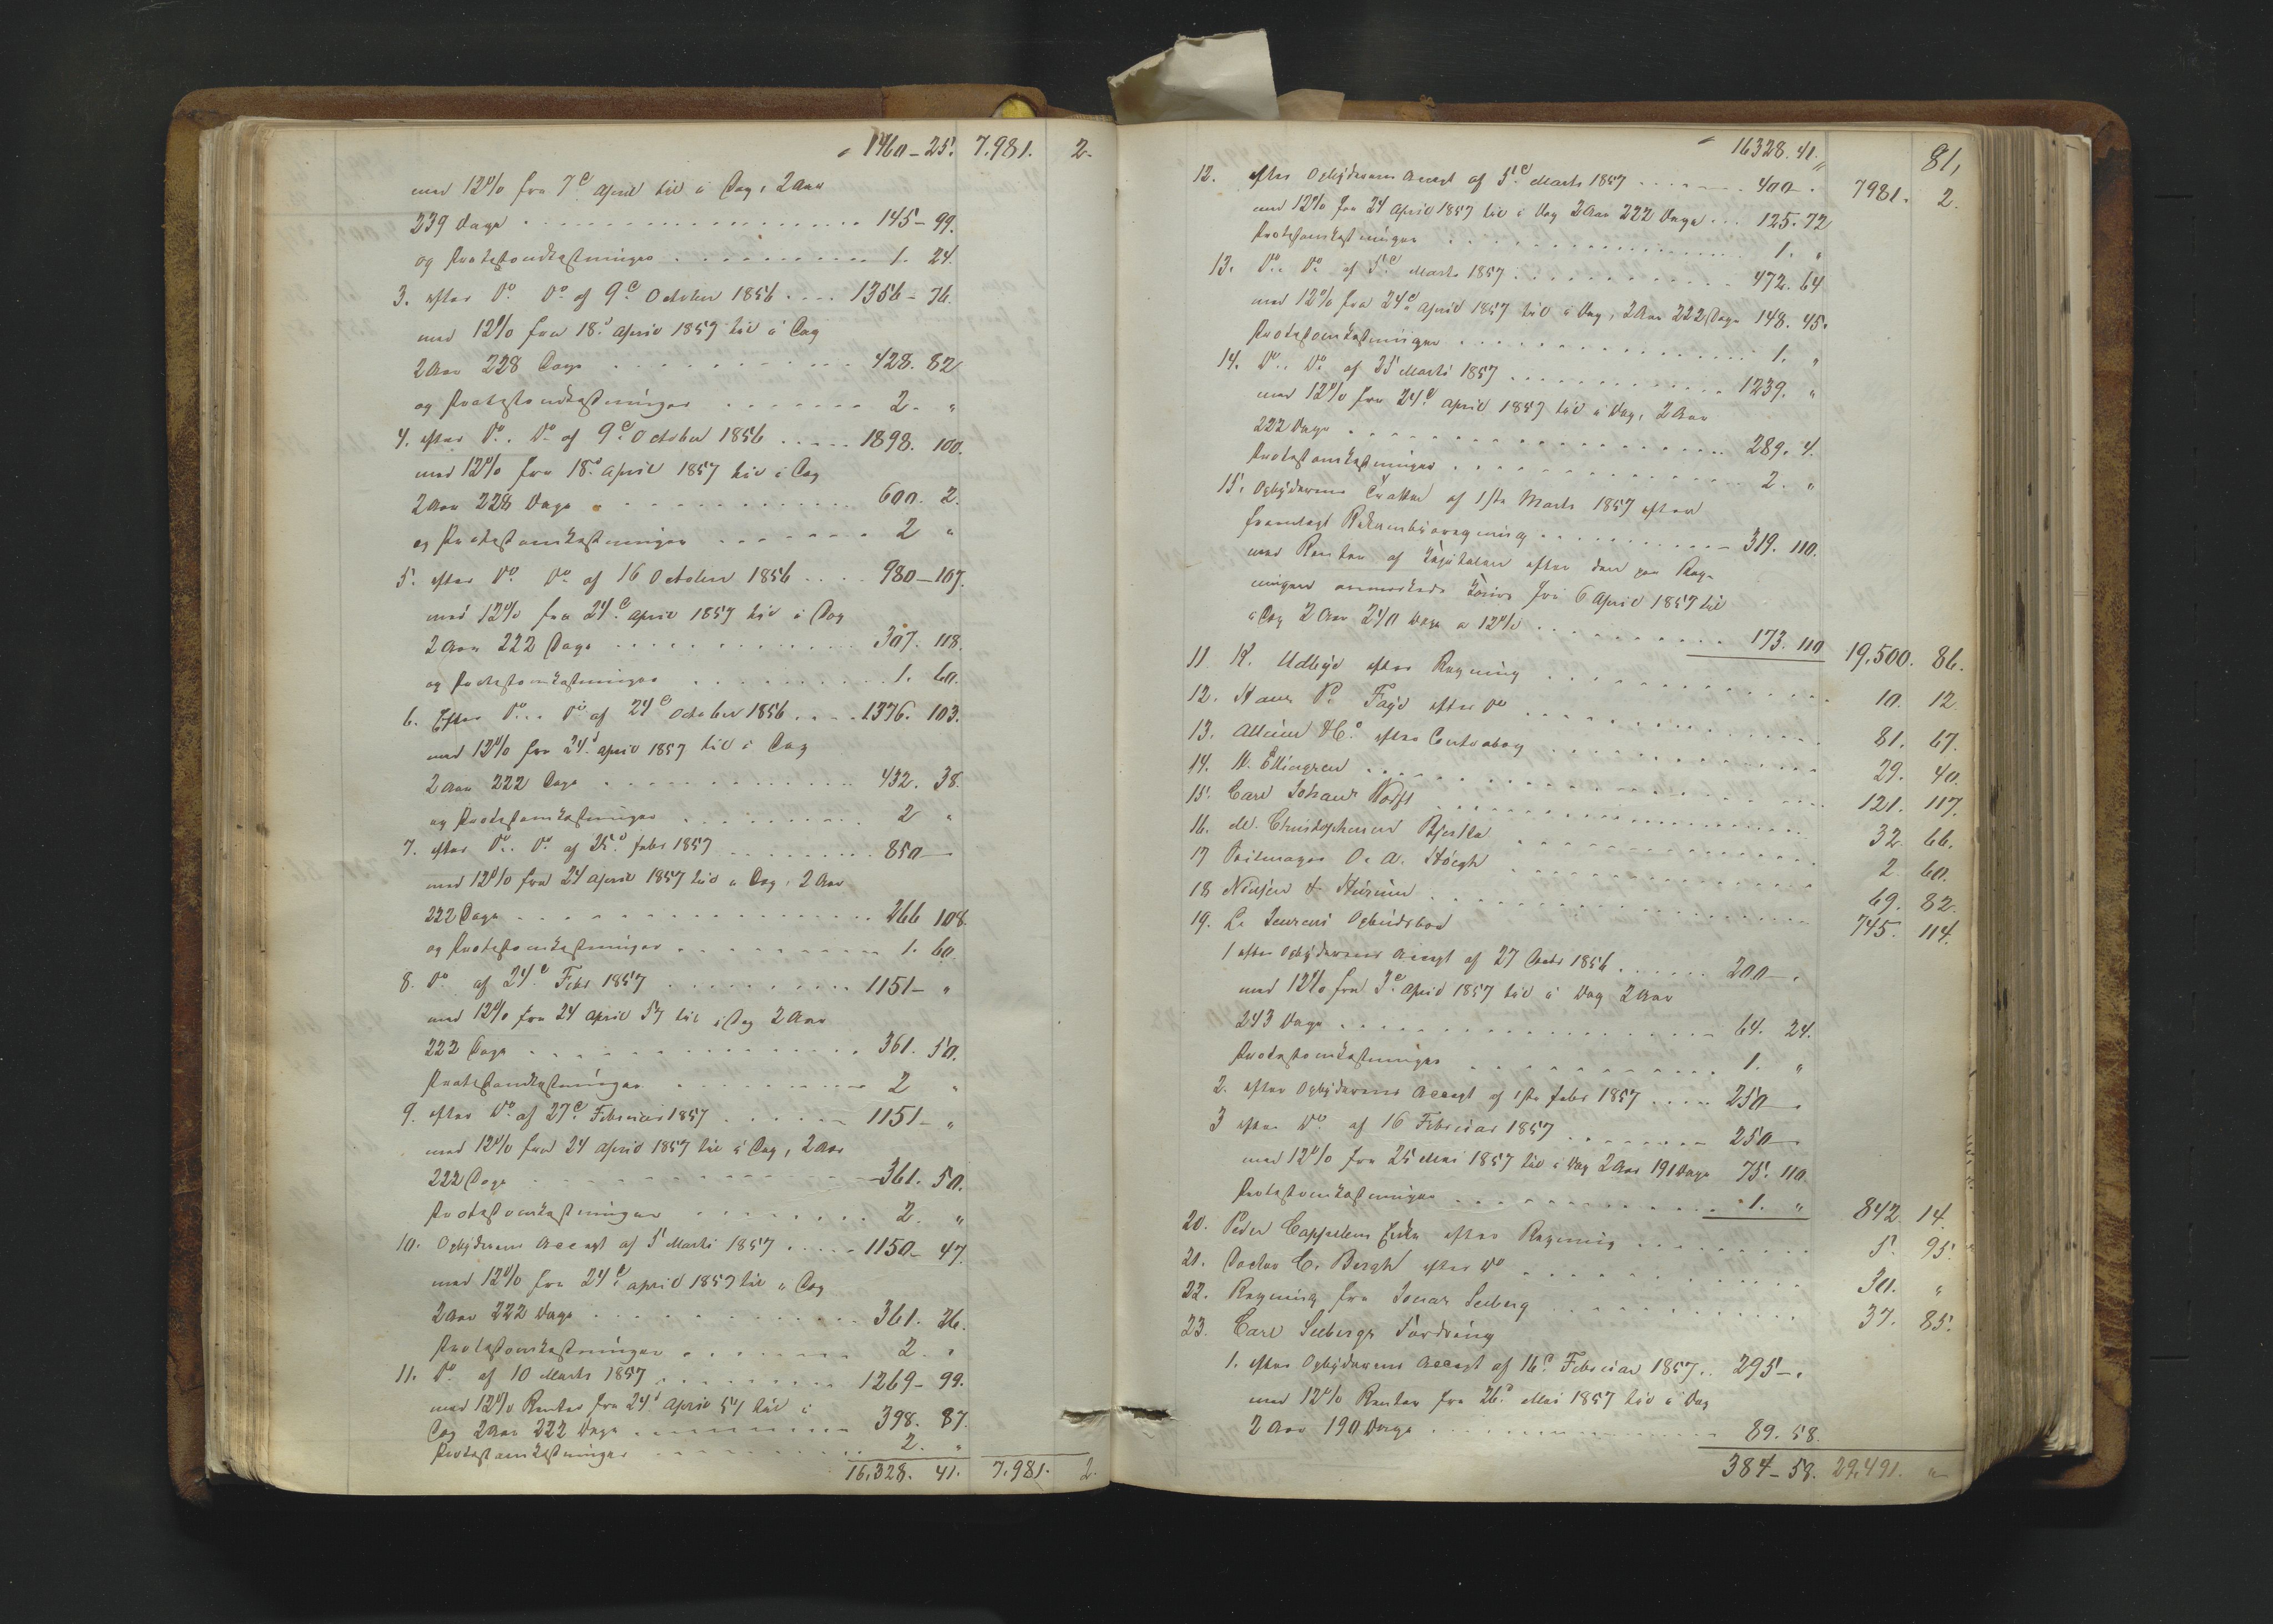 1460 – 25. 7.981. 2.
med 12% fra 7de April til i Dag, 2 Aar
239 Dage . . . 145 – 99.
og Protestomkostninger . . . 1. 24.
3. efter Do. Do. af 9de October 1856 . . . 1356 – 76.
med 12% fra 18de April 1857 til i Dag
2 Aar 228 Dage . . . 428. 82
og Protestomkostninger . . . 2. "
4. efter Do. Do. af 9de October 1856 . . . 1898. 100.
med 12% fra 18de April 1857 til i Dag
2 Aar 228 Dage . . . 600. 2.
og Protestomkostninger . . . 2 "
5. efter Do. Do. af 16 October 1856 . . . 980 – 107.
med 12% fra 24de April 1857 til i Dag
2 Aar 222 Dage . . . 307. 118.
og Protestomkostninger . . . 1. 60.
6. Efter Do. Do. af 24de October 1856 . . . 1376. 103.
med 12% fra 24de April 1857 til i Dag
2 Aar 222 Dage . . . 432. 38.
og Protestomkostninger . . . 2 "
7. efter Do. Do. af 25de Febr 1857 . . . 850 –
med 12% fra 24 April 1857 til i Dag, 2 Aar
222 Dage . . . 266 108.
og Protestomkostninger . . . 1. 60.
8. Do. af 24de Febr 1857 . . . 1151 – "
med 12% fra 24 April 57 til i Dag 2 Aar
222 Dage . . . 361. 50.
Protestomkostninger . . . 2 "
9. efter Do. af 27de Februar 1857 . . . 1151 – "
med 12% fra 24 April 1857 til i Dag, 2 Aar
222 Dage . . . 361. 50.
Protestomkostninger . . . 2. "
10. Opbyderens Accept af 5 Marts 1857 . . . 1150 – 47.
med 12% fra 24de April 1857 til i Dag
2 Aar 222 Dage . . . 361. 26.
Protestomkostninger . . . 2. "
11. Do. af 10 Marts 1857 . . . 1269 – 99.
med 12% Renter fra 24de April 57 til i
Dag 2 Aar 222 Dage . . . 398. 87.
Protestomkostninger . . . 2. "
16,328. 41. 7,981. 2.
81,
16328. 41. 7981. 2.
12. efter Opbyderens Accept af 5de Marts 1857 . . . 400 – "
med 12% fra 24 April 1857 til i Dag 2 Aar 222 Dage . . . 125. 72
Protestomkostninger . . . 1. "
13. Do. Do. af 5de Marts 1857 . . . 472. 64
med 12% fra 24de April 1857 til i Dag, 2 Aar 222 Dage 148. 45.
Protestomkostninger . . . 1. "
14. Do. Do. af 25 Marts 1857 . . . 1239. "
med 12% fra 24de April 1857 til i Dag, 2 Aar
222 Dage . . . 289. 4.
Protestomkostninger . . . 2. "
15. Opbyderens Tratte af 1ste Marts 1857 efter
fremlagt Rekambioregning . . . 319. 110.
med Renter af Kapitalen efter den paa Reg-
ningen anmærkede Kours fra 6 April 1857 til
i Dag 2 Aar 240 Dage a 12% . . . 173. 110 19,500. 86.
11. K. Udbye efter Regning . . . 10. 12.
12. Hans P. efter Do . . . 81. 67.
13. & Co. efter Contrabog . . . 29. 40.
14. . . . 121. 117.
15. Carl Johan . . . 32. 66.
16. M. Christophersen . . . 2. 60.
17 O. A. Høegh . . . 69. 82.
18 Nielsen & . . . 745. 114.
19. L. Jensens Opbudsbo
1 efter Opbyderens Accept af 27 1856 . . . 200 – "
med 12% fra 3de April 1857 til i Dag 2 Aar
243 Dage . . . 64. 24.
Protestomkostninger . . . 1. "
2. efter Opbyderens Accept af 1ste Febr 1857 . . . 250 – "
3 efter Do. af 16 Februar 1857 . . . 250 – "
med 12% fra 25 Mai 1857 til i Dag 2 Aar 191 Dage 75. 110.
Protestomkostninger . . . 1. " 842. 14.
20. Peder Cappelens Enke efter Regning . . . 5. 95.
21. Doctor C. Bergh efter Do . . . 30. "
22. Regning fra Jonas Seeberg . . . 37. 85.
23. Carl Seebergs Fordring
1. efter Opbyderens Accept af 16de Februar 1857 . . 295 – "
med 12% Renter fra 26de Mai 1857 til i Dag
2 Aar 190 Dage . . . 89. 58.
384 – 58. 29,491. "